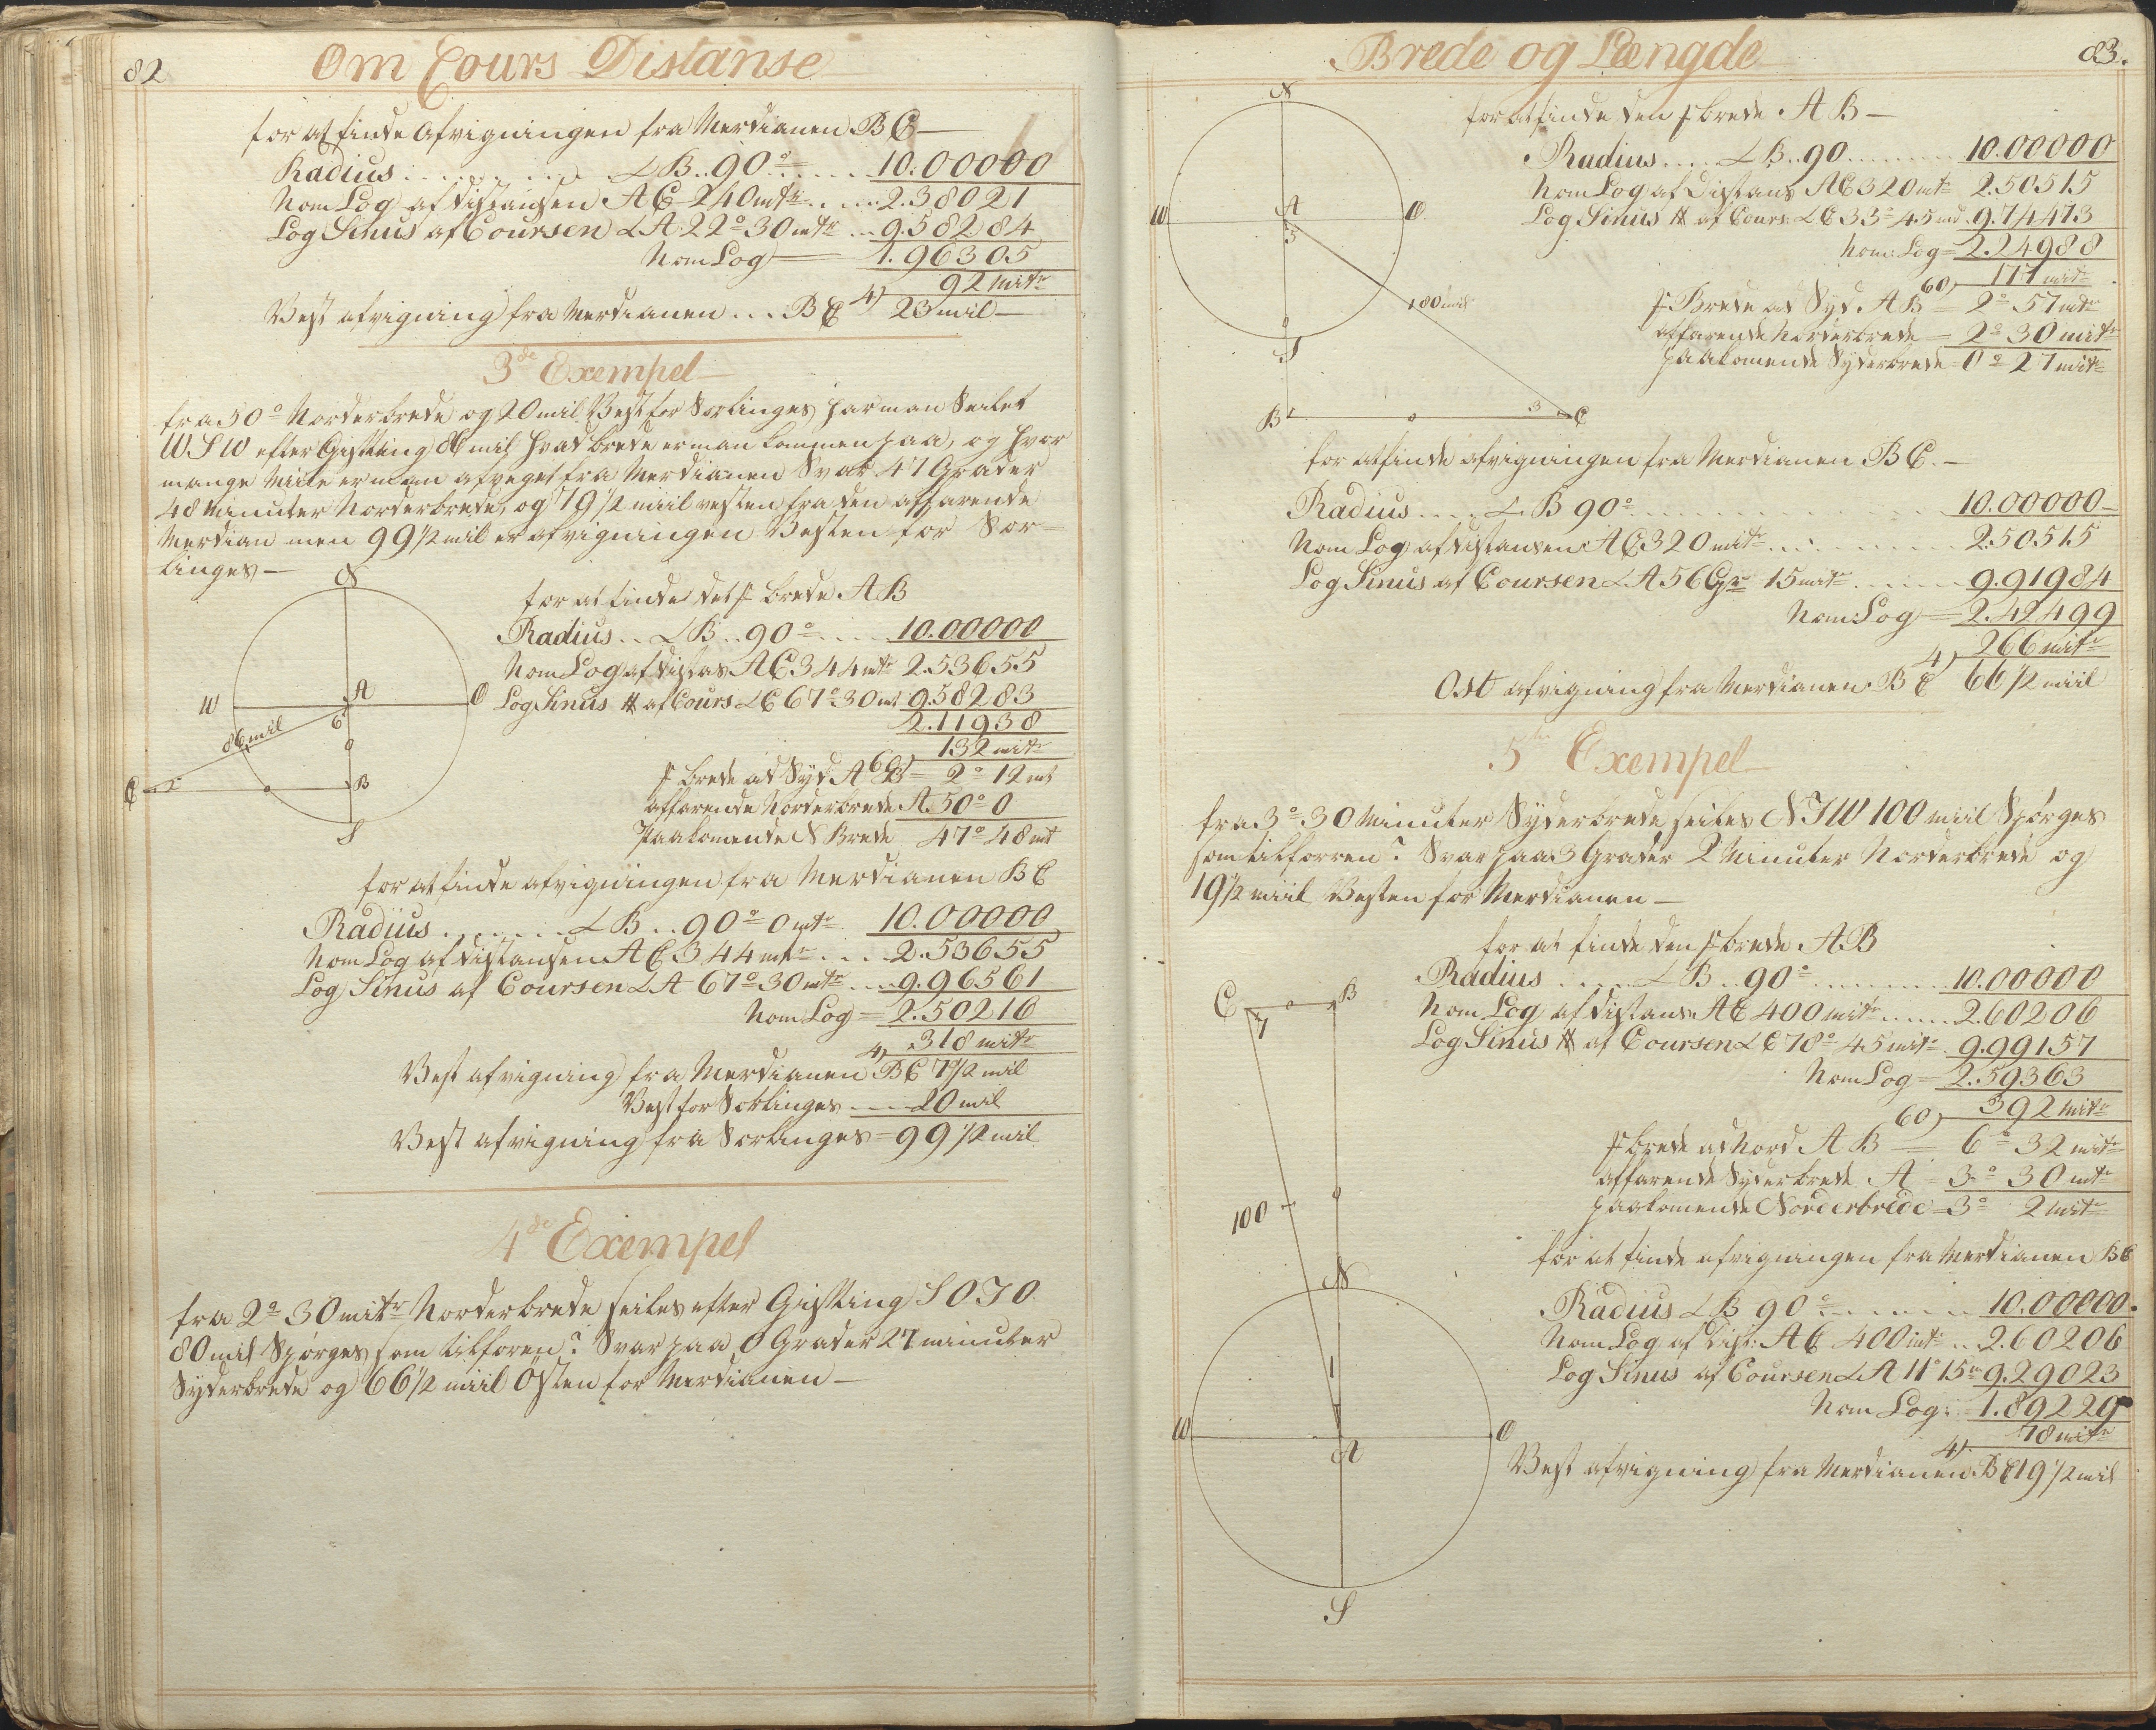 82
Om Cours Distanse
for at finde Afvigningen fra Merdianen B C —
Radius . . . . . . . ∠ B . . 90° . . . . 10.00000
Nom Log af distansen A C 240 mtr . . . 2.38021
Log Sinus af Coursen ∠ A 22° 30 mtr . . 9.58284
Nom Log — 1.96305
4) 92 mitr
Vest afvigning fra Merdianen . . . B C 23 mil —
3de Exempel
fra 50° Norderbrede og 20 mil Vest for Sorlinges har man Seilet
WSW efter Gisning 86 mil hvad brede er man kommen paa, og hvor
mange Mile er man afveget fra Merdianen Svar 47 Grader
48 Minuter Norderbrede, og 79 1/2 miil vesten fra den affarende
Merdian men 99 1/2 mil er afvigningen Vesten for Sor=
linges —
N
W
O
S
A
B
C
6
2
86 mil
for at finde det f. brede A B
Radius . . ∠ B . . 90° . . . . 10.00000
Nom Log af distas A C 344 mtr 2.53655
Log Sinus # af Cours ∠ C 67° 30 mt 9.58283
2.11938
60) 132 mitr
f brede ad Syd A B = 2° 12 mt
affarende Norderbrede A. 50° 0
Paakomende N Brede 47° 48 mt
for at finde afvigningen fra Merdianen B C
Radius . . . . . . . ∠ B . . 90° 0 mtr 10.00000
Nom Log af distansen A C 344 mtr . . . . 2.53655
Log Sinus af Coursen ∠ A 67° 30 mtr . . . 9.96561
Nom Log = 2.50216
4) 318 mitr
Vest afvigning fra Merdianen B C 79 1/2 mil
Vest for Sorlinges . . . 20 mil
Vest afvigning fra Sorlinges = 99 1/2 mil
4de Exempel
fra 2° 30 mitr Norderbrede seiles efter Gisning SOJO.
80 mil Spørges som tilforen? Svar paa 0 Grader 27 minuter
Syderbrede og 66 1/2 miil Østen for Merdianen —
Brede og Længde
83.
N
W
O
S
A
5
B
C
3
80 mil
for at finde den f brede A B —
Radius . . . . ∠ B . . 90 . . . . . . . 10.00000
Nom Log af Distans A C 320 mtr 2.50515
Log Sinus # af Cours: ∠ C 33° 45 mt 9.74473
Nom: Log = 2.24988
60) 177 mitr
f Brede ad Syd. A B = 2° 57 mtr
affarende Norderbrede = 2° 30 mitr
paakomende Syderbrede = 0° 27 mitr
for at finde afvigningen fra Merdianen B C. —
Radius . . . . ∠ B 90° . . . . . . . . . 10.00000 —
Nom Log af distansen A C 320 mitr . . . . . . 2.50515
Log Sinus af Coursen ∠ A 56 Gr 15 mitr . . . . 9.91984
Nom: Log = 2.42499
4) 266 mitr
Ost afvigning fra Merdianen. B C 66 1/2 miil
5te Exempel
fra 3° 30 Minuter Syderbrede seiles NJW 100 miil Spørges
som tilforren? Svar paa 3 Grader 2 Minuter Norderbrede og
19 1/2 miil Vesten for Merdianen —
C
7
B
100
N
1
W
A
O
S
for at finde den f brede A.B
Radius . . . . . ∠ B . . 90° . . . . . . . 10.00000
Nom Log af distans. A C 400 mitr . . . . . 2.60206
Log Sinus # af Coursen ∠ C 78° 45 mitr 9.99157
Nom Log = 2.59363
60) 392 mitr
f brede ad Nord A B — 6° 32 mitr
affarende Syderbrede A = 3° 30 mtr
paakomende Norderbrede = 3° 2 mitr
for at finde afvigningen fra Merdianen B C
Radius ∠ B 90° . . . . . . 10.00000.
Nom Log af Dist: A C 400 mtr . . 2.60206
Log Sinus af Coursen ∠ A 11° 15 m 9.29023
Nom Log: 1.89229
4) 78 mitr
Vest afvigning fra Merdianen. B C 19 1/2 mil